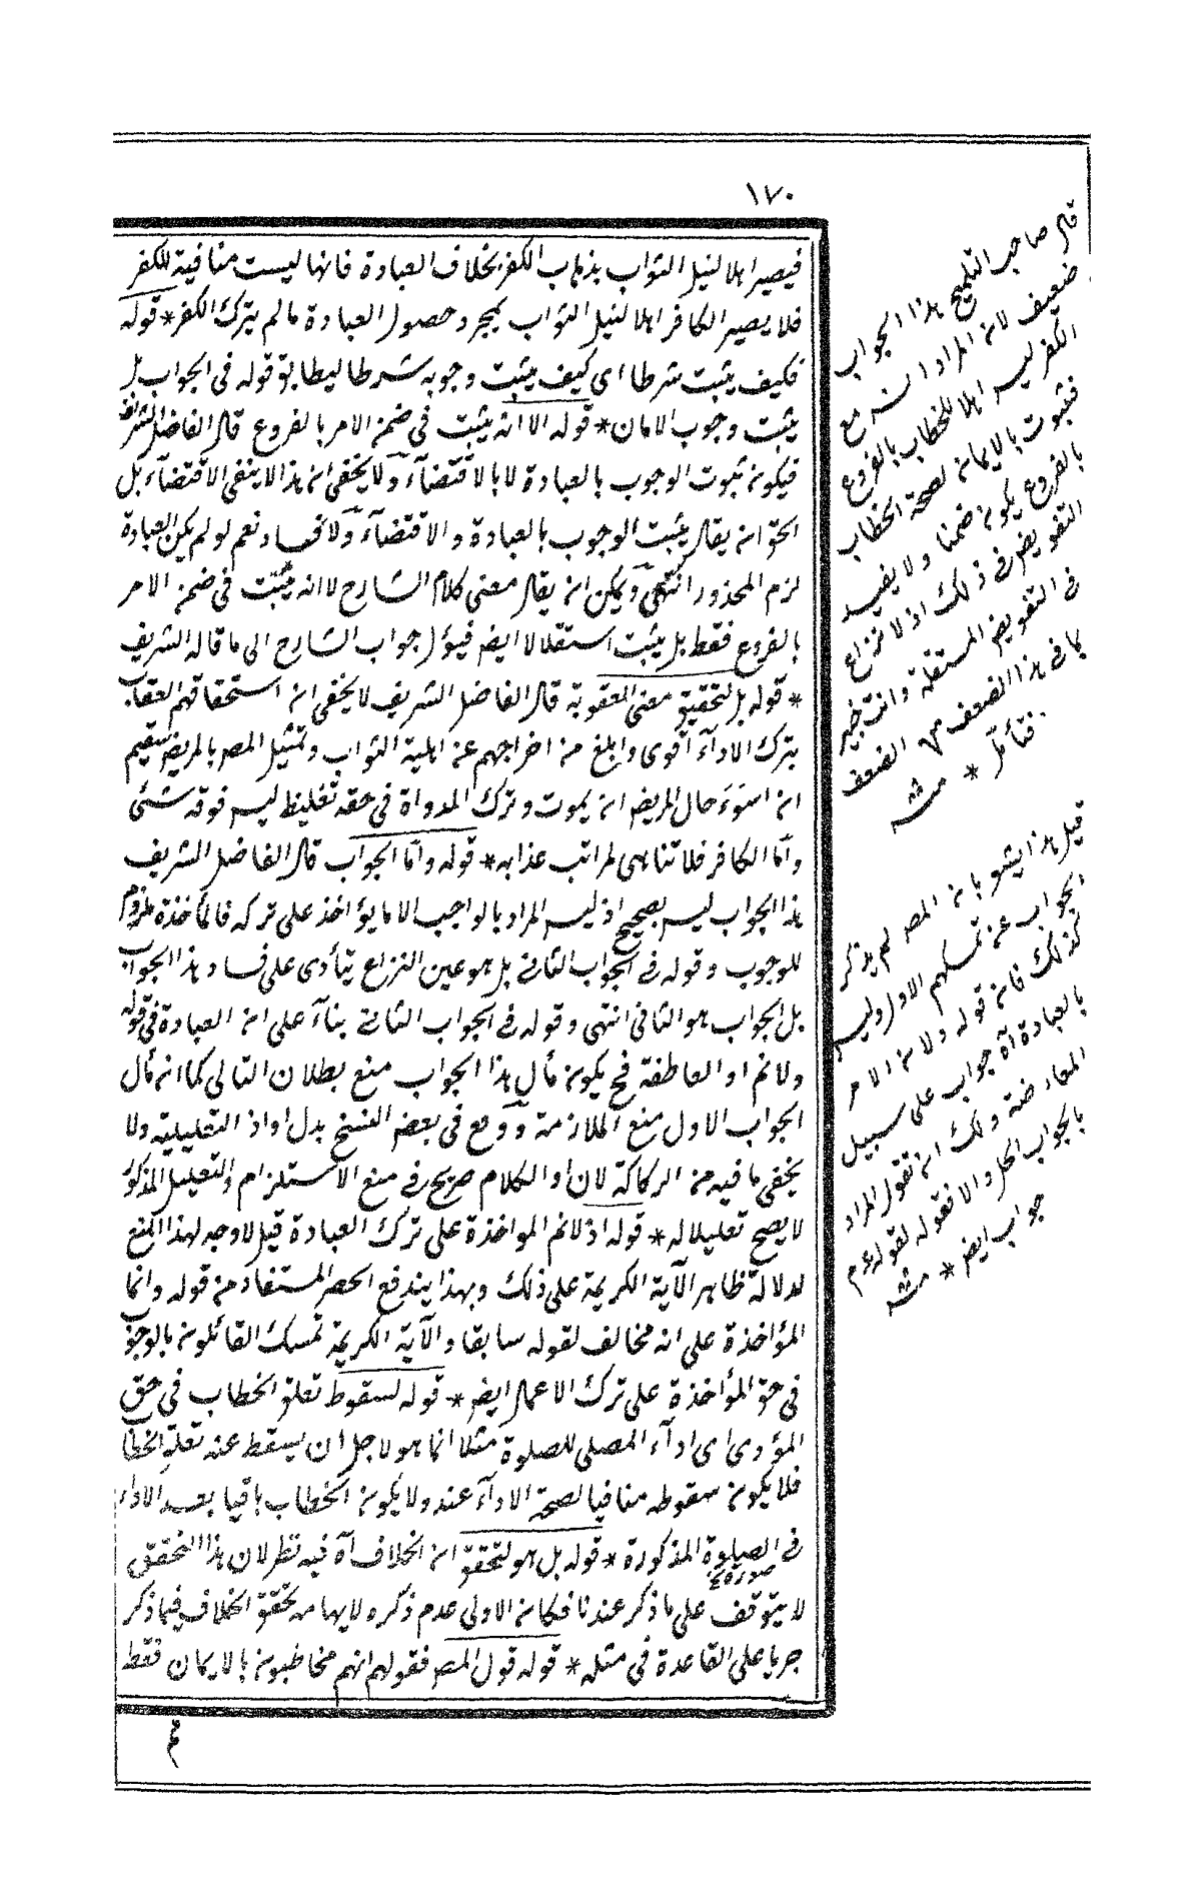 ١٧٠
فيصير اهلا لنيل الثواب بذهاب الكفر بخلاف العبادة فانها ليست منافية للكفر
فلا يصير الكافر اهلا لنيل الثواب بمجرد حصول العبادة ما لم يترك الكفر * قوله
فكيف يثبت شرطا اى كيف يثبت وجوبه شرطا ليطابق قوله فى الجواب بل
يثبت وجوب الامان * قوله الا انه يثبت فى ضمن الامر بالفروع قال الفاضل الشريف
فيكون ثبوت الوجوب بالعبادة لا بالاقتضآء ولا يخفى ان هذا لا ينفى الاقتضآء بل
الحق ان يقال يثبت الوجوب بالعبادة والاقتضآء ولا فساد نعم لو لم يكن العبادة
لزم المحذور انتهى ويمكن ان يقال معنى كلام الشارح لا انه يثبت فى ضمن الامر
بالفروع فقط بل يثبت استقلالا ايض فيؤل جواب الشارح الى ما قاله الشريف
* قوله بل لتحقيق معنى العقوبة قال الفاضل الشريف لا يخفى ان استحقاقهم العقاب
بترك الادآء اقوى وابلغ من اخراجهم عن اهلية الثواب وتمثيل المص بالمريض سقيم
ان اسوء حال المريض ان يموت وترك المدواة فى حقه تغليظ ليس فوقه شئ
واما الكافر فلا تناهى لمراتب عذابه * قوله واما الجواب قال الفاضل الشريف
هذا الجواب ليس بصحيح اذ ليس المراد بالواجب الا ما يؤاخذ على تركه فالمأخذة ملزوم
للوجوب وقوله فى الجواب الثانى بل هو عين النزاع يتأدى على فساد هذا الجواب
بل الجواب هو الثانى انتهى وقوله فى الجواب الثانى بنآء على ان العبادة فى قوله
ولانم او العاطفة فح يكون مأل هذا الجواب منع بطلان التالى كما ان مأل
الجواب الاول منع الملازمة ووقع فى بعض النسخ بدل او اذ التعليلية ولا
يخفى ما فيه من الركاكة لان او الكلام صريح فى منع الاستلزام والتعليل المذكور
لا يصح تعليلا له * قوله اذ لانم المواخذة على ترك العبادة قيل لا وجه لهذا المنع
لدلالة ظاهر الآية الكريمة على ذلك وبهذا يندفع الحصر المستفاد من قوله وانما
المؤاخذة على انه مخالف لقوله سابقا والآية الكريمة تمسك القائلون بالوجوب
فى حق المؤاخذة على ترك الاعمال ايض * قوله لسقوط تعلق الخطاب فى حق
المؤدى اى ادآء المصلى للصلوة مثلا انما هو لاجل ان يسقط عنه تعلق الخطاب
فلا يكون سقوطه منافيا لصحة الادآء عنده ولا يكون الخطاب باقيا بعد الاداء
فى الصلوة المذكورة * قوله بل هو لتحقق ان الخلاف آه فيه نظر لان هذا التحقق
صورة
لا يتوقف على ما ذكر عندنا فكان الاولى عدم ذكره لايهامه تحقق الخلاف فيما ذكر
جريا على القاعدة فى مثله * قوله قول المص فقولهم انهم مخاطبون بالايمان فقط
قال صاحب التلميح هذا الجواب
ضعيف لان المراد انه مع
الكفر ليس اهلا للخطاب بالفروع
فثبوت بالايمان لصحة الخطاب
بالفروع يكون ضمنا ولا يفيد
التفويض فى ذلك اذ لا نزاع
فى التفويض المستقلة وانت خبير
بما فى هذا الضعف من الضعف
فتأمل * منه
قيل هذا يشعر بان المص لم يذكر
الجواب عن تمسكهم الاول وليس
كذلك فان قوله ولان الامر
بالعبادة آه جواب على سبيل
المعارضة ولك ان تقول المراد
بالجواب الحل والا فقوله لقوله عم
جواب ايض * منه